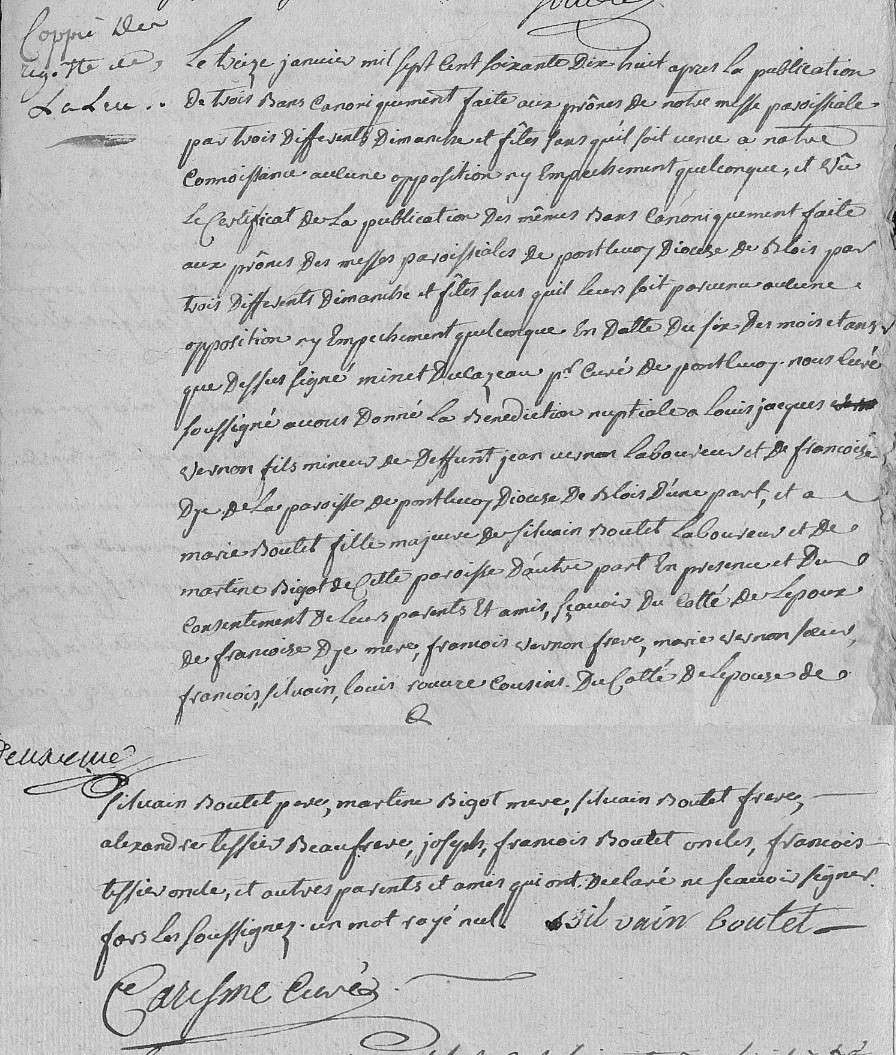 Coppié des
reg.tre de
LaLeu..
Le treize janvier mil sept Cent soixante Dix huit apres La publication
De trois Bans Canoniquement faite aux prônes de notre messe paroissiale
par trois Differents Dimanche et fêtes sans qu'il soit venu a notre
Connoissance aucune opposition ny Empechement quelconque, et vû
Le Certificat De La publication Des mêmes Bans Canoniquement faite
aux prônes Des messes paroissiales de pontlevoy Diocese de Blois par
trois Differents Dimanche et fêtes sans quil leurs soit parvenu aucune
opposition ny Empechement quelconque En Datte Du six Des mois et ans
que Dessus signé minet Dulazeau pr. Curé De pontlevoy. nous Curé
soussigné avons Donné La Benediction nuptiale a Louis jacques
vernon fils mineur de Deffunt jean vernon Laboureur et De francoise
Dye de La paroisse de pontlevoy Diocese De Blois D'une part, et a
marie Boutet fille majeure de silvain Boutet Laboureur et De
martine Bigot de Cette paroisse D'autre part En presence et Du
Consentement De Leurs parents Et amis, sçavoir Du Cotté De Lepoux
De francoise Dye mere, francois vernon frere, marie vernon soeur,
francois, silvain, louis cousins. Du Cotté De Lepouse de
Deuxieme
silvain Boutet pere, martine Bigot mere, silvain Boutet frere,
alexandre tessier Beaufrere, joseph, francois Boutet oncles, francois
tessier oncle, et autres parents et amis qui ont Declaré ne scavoir signer
fors Les soussignez. un mot rayé nul. silvain boutet
Carisme Curé